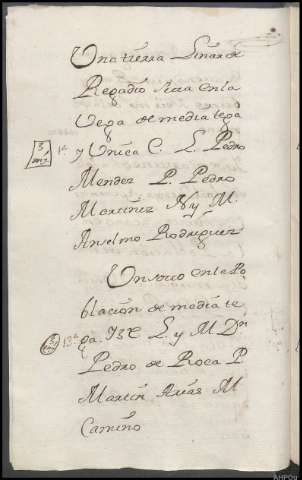 Una tierra Linar de
Regadio sita en la
Vega de media tega
y Unica C. L. Pedro
Mendez P. Pedro
Martinez N y M.
Anselmo Rodriguez
Un soto en la Po
blacion de media te
ga L y M Dn
Pedro de Roca P
Martin Arias M
Camino
AHPOU